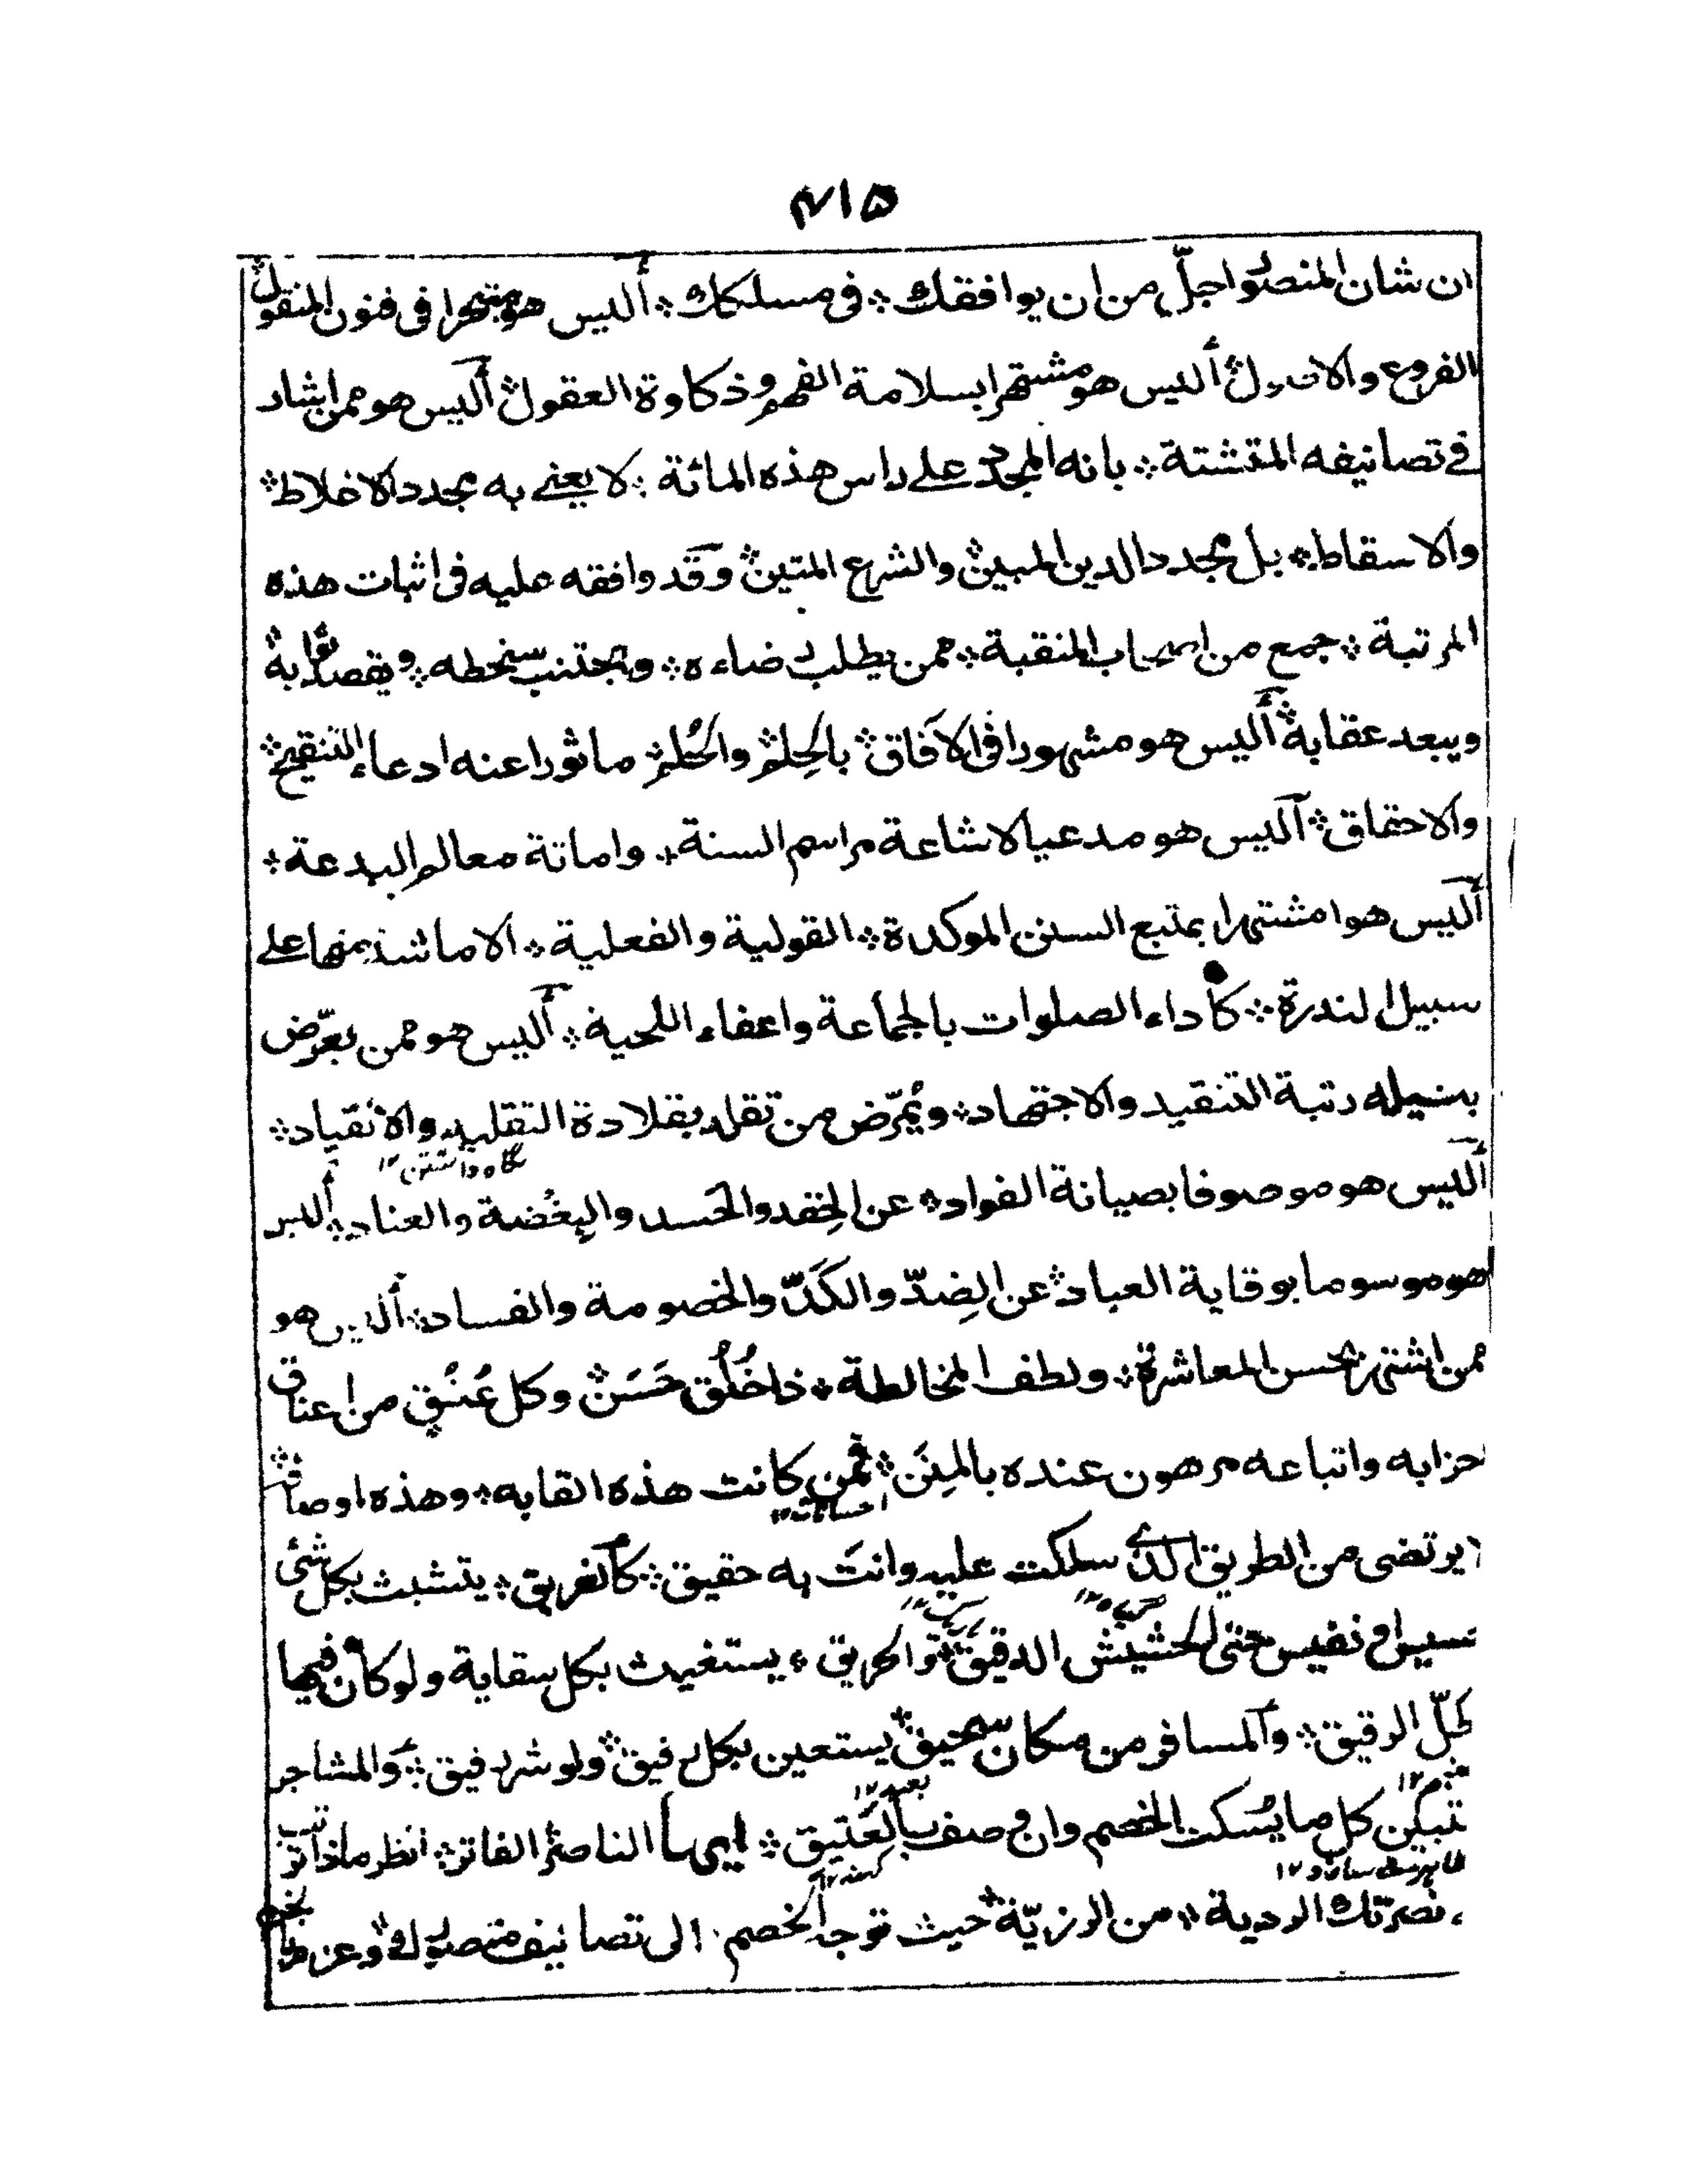 ۴۱۵
ان شان المنصور اجلّ من ان يوافقك ؞ فى مسلكك ؞ أليس هو متبحرا فى فنون المنقول ؞
الفروع والاصول ؞ أليس هو مشتهرا بسلامة الفهم وذكاوة العقول ؞ أليس هو ممن اشار
فى تصانيفه المتشتة ؞ بانه المجدد على راس هذه المائة ؞ لا يعنى به مجدد الاغلاط ؞
والاسقاط ؞ بل مجدد الدين المبين ؞ والشرع المتين ؞ وقد وافقه عليه فى اثبات هذه
المرتبة ؞ جمع من اصحاب المنقبة ؞ ممن يطلب رضاءه ؞ ويجتنب سخطه ؞ ويقصد ثوابه ؞
ويبعد عقابه ؞ أليس هو مشهورا فى الآفاق ؞ بالحِلم ؞ والحُلم ؞ ماثورا عنه ادعاء التنقيح ؞
والاحقاق ؞ أليس هو مدعيا لاشاعة مراسم السنة ؞ واماتة معالم البدعة ؞
أليس هوا مشتهرا بمتبع السنن الموكدة ؞ القولية والفعلية ؞ الا ما شذ منها على
سبيل الندرة ؞ كأداء الصلوات بالجماعة واعفاء اللحية ؞ أليس هو ممن يعرّض
بنيله رتبة التنقيد والاجتهاد ؞ ويُمرّض من تقلد بقلادة التقليد والانقياد ؞
نگاه داشتن ۱۲
أليس هو موصوفا بصيانة الفواد ؞ عن الحِقد والحَسد والبِغْضة والعناد ؞ أليس
هو موسوما بوقاية العباد ؞ عن الضِدّ والكَدّ والخصومة والفساد ؞ أليس هو
ممن اشتهر بحسن المعاشرة ؞ ولطف المخالطة ؞ ذا خُلُق حَسَن ؞ وكل عُنُق من اعناق
احزابه واتباعه مرهون عنده بالمِنَن ؞ فمن كانت هذه القابه ؞ وهذه اوصافه ؞
احسانات ۱۲
لا يرتضى من الطريق الذى سلكت عليه وانتَ به حقيق ؞ كالغريق ؞ يتشبث بكل شئ
خسيس او نفيس حتى الحشيش الدقيق ؞ والحريق ؞ يستغيث بكل سقاية ولو كان فيها
الرقيق ؞ والمسافر من مكان سحيق ؞ يستعين بكل رفيق ؞ ولو شر رفيق ؞ والمشاجر
بعيد ۱۲
كل ما يسكت الخصم وان وصف بالعَتيق ؞ ايها الناصر الفاتر ؞ انظر ماذا
كهنه ۱۲
نصرتك الردية ؞ من الرزيّة ؞ حيث توجه الخصم الى تصانيف منصورك ؞